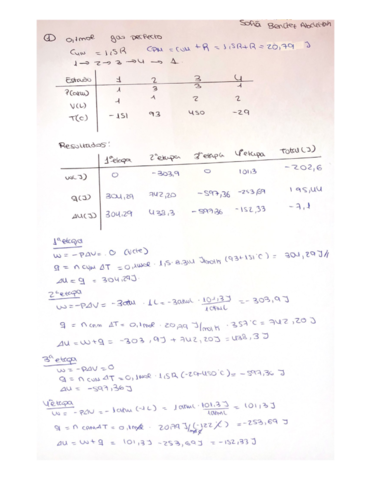 Sofía Benítez
① 0,1 mol gas perfecto
Cvm = 1,5R Cpm = Cvm + R = 1,5R + R = 20,79 J
1 → 2 → 3 → 4 → 1
Estado 1 2 3 4
P(atm) 1 3 3 1
V(L) 1 1 2 2
T(C) -151 93 450 -29
Resultados:
1ª etapa 2ª etapa 3ª etapa 4ª etapa Total (J)
w(J) 0 -303,9 0 101,3 -202,6
q(J) 304,29 742,20 -597,36 -253,69 195,44
ΔU(J) 304,29 438,3 -597,36 -152,33 -7,1
1ª etapa
w = -PΔV = 0
q = n Cvm ΔT = 0,1 mol · 1,5 · 8,314 (93+151°C) = 304,29 J
ΔU = q = 304,29 J
2ª etapa
w = -PΔV = -3atm · 1L = -3atmL · 101,3J/1atmL = -303,9 J
q = n Cpm ΔT = 0,1 mol · 20,79 J/ · 357°C = 742,20 J
ΔU = w + q = -303,9 J + 742,20 J = 438,3 J
3ª etapa
w = -PΔV = 0
q = n Cvm ΔT = 0,1 mol · 1,5R (-29-450°C) = -597,36 J
ΔU = -597,36 J
4ª etapa
w = -PΔV = -1atm (-1L) = 1atmL · 101,3J/1atmL = 101,3 J
q = n Cpm ΔT = 0,1 mol · 20,79 J (-122) = -253,69 J
ΔU = w + q = 101,3 J - 253,69 J = -152,33 J